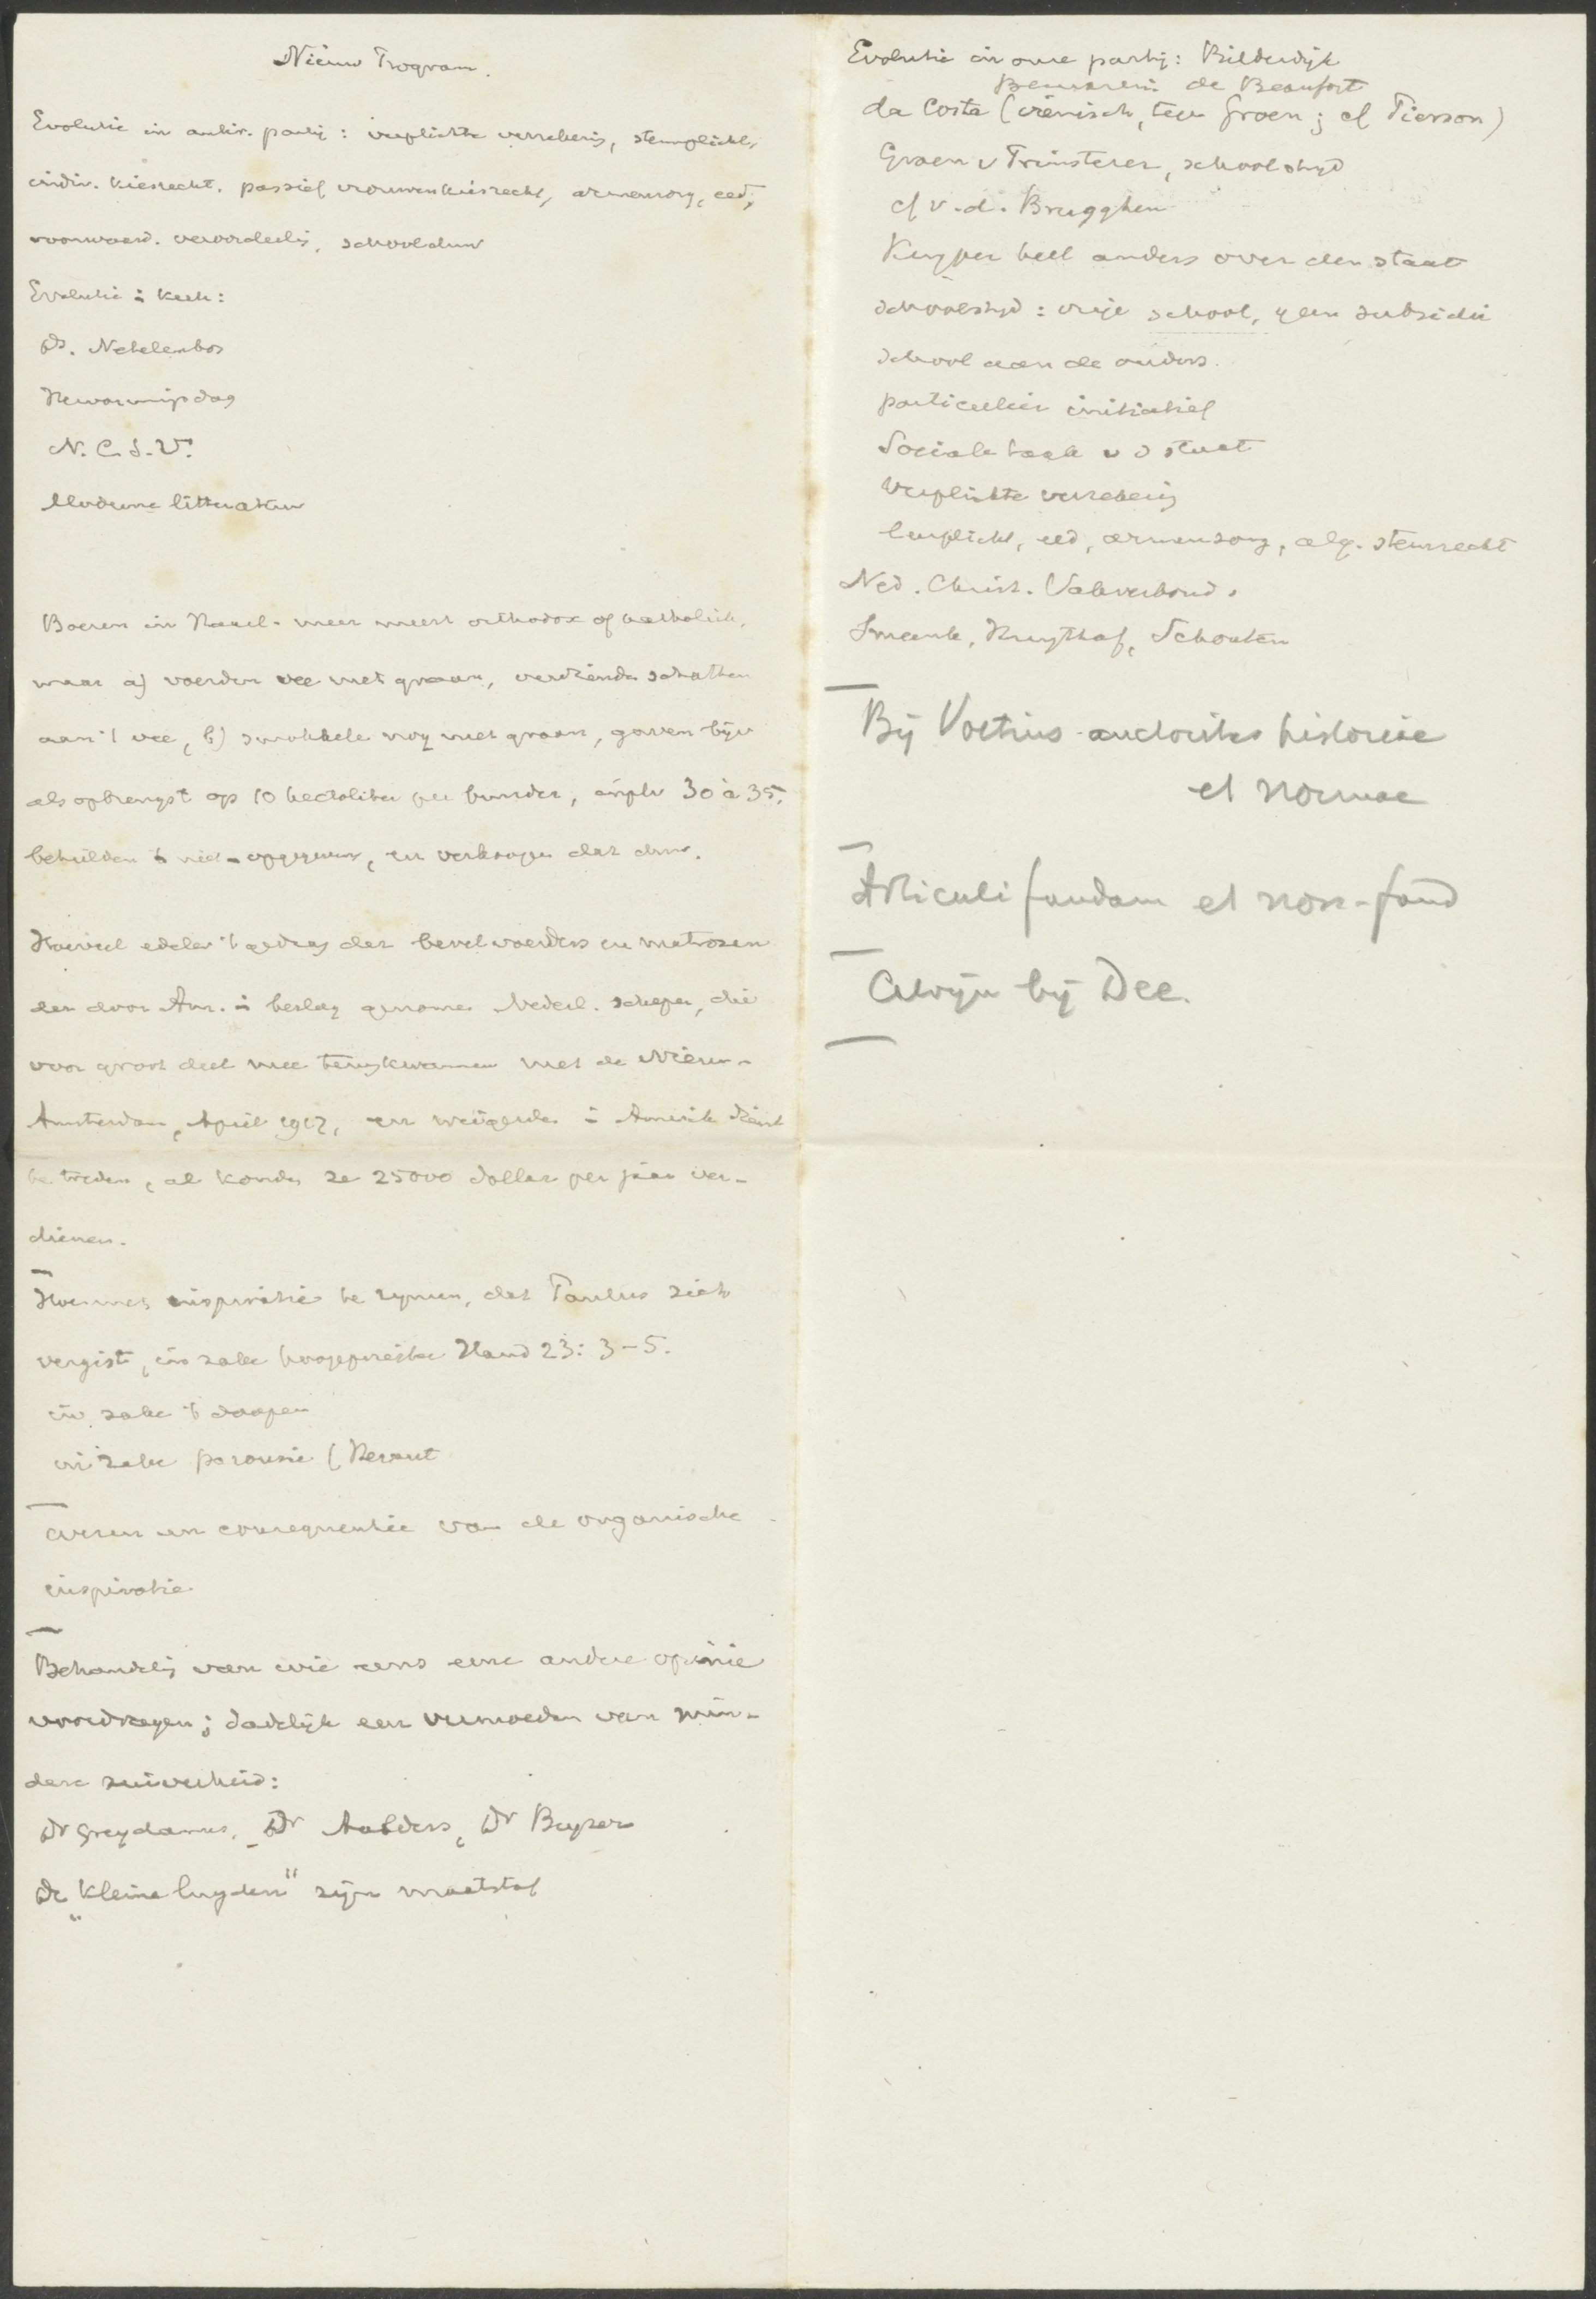 Nieuw Program.
Evolutie in antir. partij: verplichte verzekering, stemplicht,
indiv. kiesrecht. passief vrouwenkiesrecht, armenzorg, eed,
voorwaard. veroordeelg, schooldwang
Evolutie i kerk:
Ds. Netelenbos
Hervormingsdag
N.C.S.V.
Moderne litteratuur
Boeren in Haarl. meer meest orthodox of katholiek,
maar a) voerden vee met graan, verdienden schatten
aan 't vee, b) smokkelden nog met graan, gaven bijv
als opbrengst op 10 hectoliter per bunder, inpl. v 30 à 35,
behielden 't niet-opgegeven, en verkoopen dat duur.
Hoeveel edeler 't gedrag der bevelvoerders en matrozen
der door Am. i beslag genomen Nederl. schepen, die
voor groot deel mee terugkwamen met de Nieuw-
Amsterdam, April 1917, en weigerden i Amerik dienst
te treden, al konden ze 25000 dollar per jaar ver-
dienen.
Hoe met inspiratie te rijmen, dat Paulus zich
vergist, in zake hoogepriester Hand 23: 3-5.
in zake 't doopen
in zake parousie
en consequentie van de organische
inspiratie
Behandelg van wie eens eene andere opinie
voordragen; dadelijk een vermoeden van min-
dere zuiverheid:
Dr Greydanus, Dr Aalders, Dr Buyzer
De „kleine luyden" zijn maatstaf
Evolutie in onze partij: Bilderdijk
de Beaufort
da Costa (irenisch, tegen Groen; cf Pierson)
Groen v Prinsterer, schoolstrijd
cf v.d. Brugghen
Kuyper heel anders over den staat
schoolstrijd: vrije school, geen subsidie
school aan de ouders.
particulier initiatief
Sociale taak v d staat
Verplichte verzekering
leerplicht, eed, armenzorg, alg. stemrecht
Ned. Christ. Vakverbond.
Smeenk, Kruythof, Schouten
Bij Voetius auctoritas historiae
et normae
Articuli fundam et non-fund
Calvijn bij Dee.